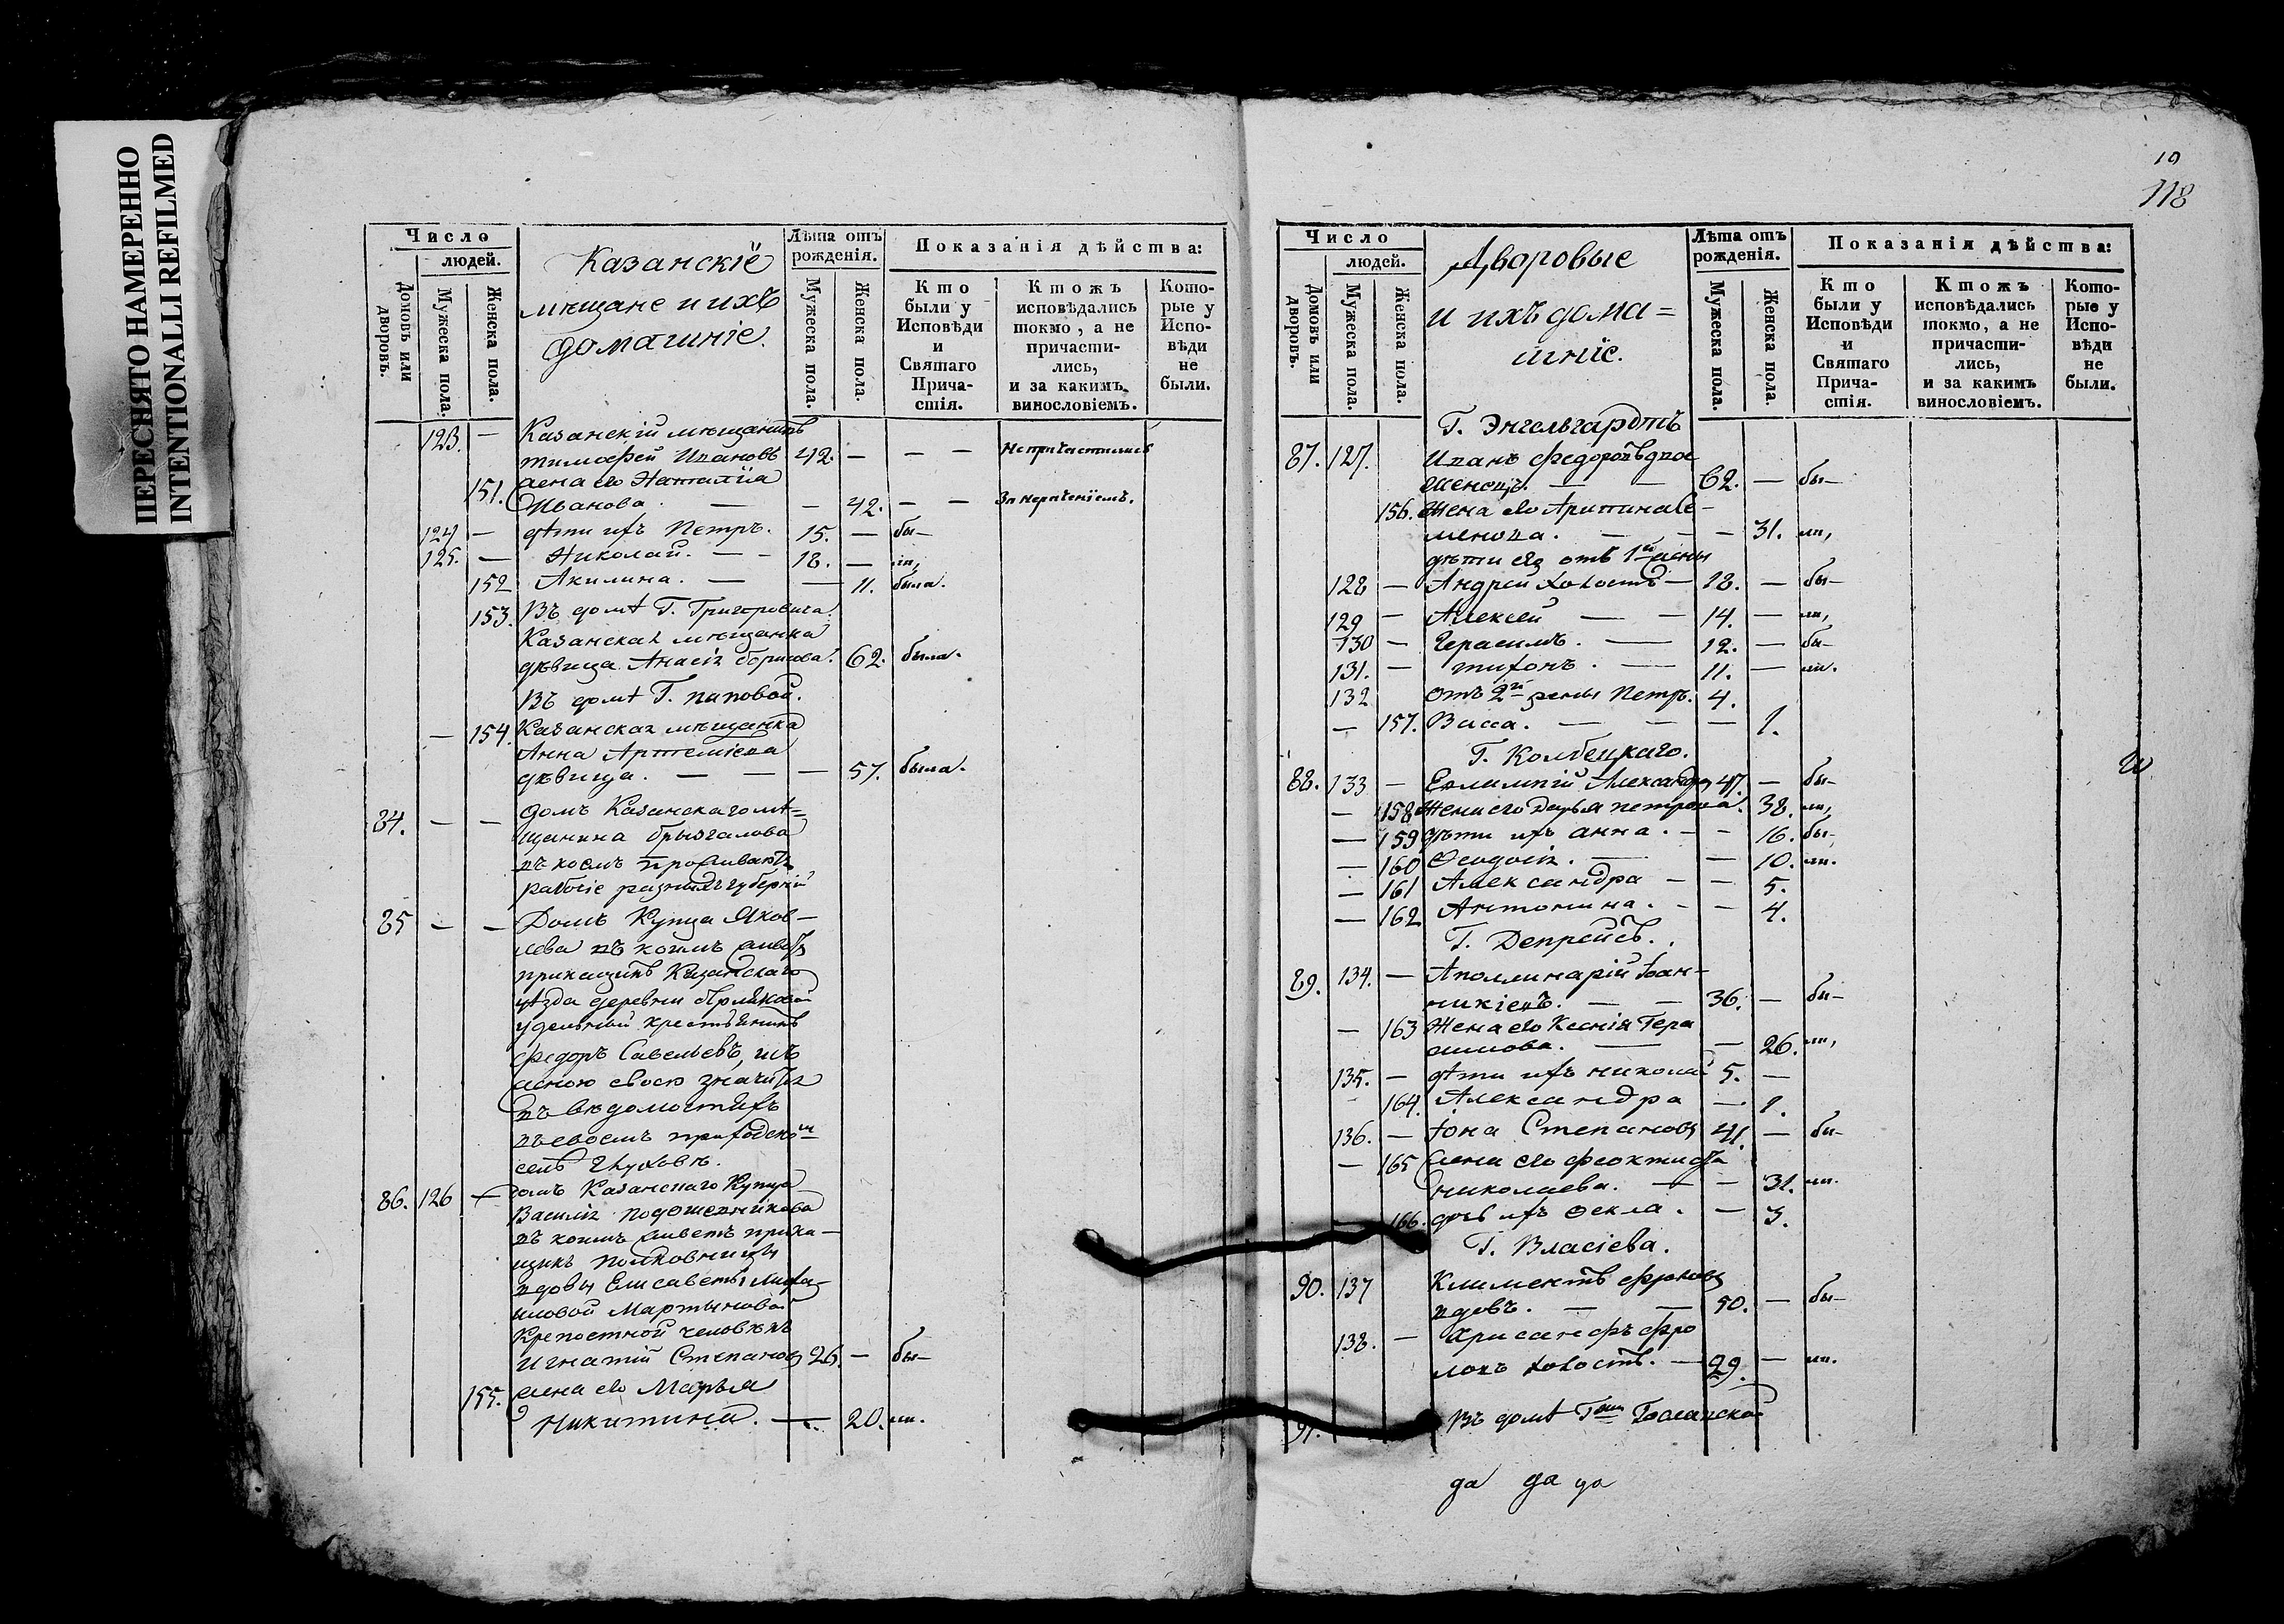 ПЕРЕСНЯТО НАМЕРЕННО
INTENTIONALLI REFILMED
Число
людей.
Домовъ или дворовъ.
Мужеска пола.
Женска пола.
Казанскіе
мѣщане и ихъ
домашніе.
Лѣта отъ рожденія.
Мужеска пола.
Женска пола.
Показанія дѣйства:
Кто были у Исповѣди и Святаго Причастія.
Ктожъ исповѣдались токмо, а не причастились, и за какимъ винословіемъ.
Которые у Исповѣди не были.
123. — Казанскій мѣщанинъ
тимофей Ивановъ 42. — — — Не причастились
151. жена его Наталія
Иванова. — — 42. — — За нераченіемъ.
124 — дѣти ихъ Петръ. 15. — бы—
125. — Николай. — — 18. — ли,
152 Акилина. — — 11. была.
153. Въ домѣ Г. Григоровича
Казанская мѣщанка
дѣвица Анисія борисова. 62. была.
Въ домѣ Г. паповой.
— 154. Казанская мѣщанка
Анна Артеміева
дѣвица. — — — 57. была.
84. — — домъ Казанскаго мѣ=
щанина брызгалова
въ коемъ проживаютъ
рабочіе разныхъ губерній
85 — — Домъ Купца Яков—
лева въ коемъ живетъ
прикащикъ Казанскаго
уѣзда деревни
удельный крестьянинъ
федоръ Савельевъ, и съ
женою своею значится
въ вѣдомостяхъ
въ своемъ приходскомъ
селѣ
86. 126 — домъ Казанскаго Купца
Василія подошевникова
въ коемъ живетъ прика—
щикъ полковницы
вдовы Елисаветы Миха—
иловой Мартыновой
Крепостной человѣкъ
Игнатій Степановъ 26. — бы—
155. жена его Марья
Никитина. — — 20. ли.
19
118
Число
людей.
Домовъ или дворовъ.
Мужеска пола.
Женска пола.
Дворовые
и ихъ дома=
шніе.
Лѣта отъ рожденія.
Мужеска пола.
Женска пола.
Показанія дѣйства:
Кто были у Исповѣди и Святаго Причастія.
Ктожъ исповѣдались токмо, а не причастились, и за какимъ винословіемъ.
Которые у Исповѣди не были.
Г. Энгельгардтъ
87. 127. Иванъ федоровъ двое
женецъ. — — 62. — бы—
156. Жена его Аришина Се—
менова. — — — 31. ли,
дѣти его отъ 1й жены
128 — Андрей холостъ — 18. — бы—
129 — Алексей — — 14. — ли,
130 — Герасимъ. — 12. — бы—
131. — тихонъ. — 11. — ли.
132 Отъ 2й жены Петръ. 4.
— 157. Васса. — — — 1.
Г. Колбецкаго.
88. 133 — Евлампій Александровъ 47. — бы—
— 158 Жена его Дарья петрова. 38. ли,
— 159 дѣти ихъ анна. — — 16. бы—
— 160 Феодосія. — — 10. ли.
— 161 Александра — — 5.
— 162 Антонина. — — 4.
Г. Депрейсъ.
89. 134. — Аполлинарій Іоан—
никіевъ. — — 36. — бы—
— 163 Жена его Ксенія Гера
симова. — — 26. ли,
135. — дѣти ихъ николай 5. —
164. Александра — 1.
136. — Іона Степановъ 41. — бы—
— 165 жена его феоктиста
николаева. — — 31. ли.
— 166. дочь ихъ Фекла. — 3.
Г. Власіева.
90. 137 Климентъ фроловъ
вдовъ. — — 50. — бы—
138. — Хрисанфъ фро
ловъ холостъ. — 29. — ли.
91. Въ домѣ Гжи
да да да